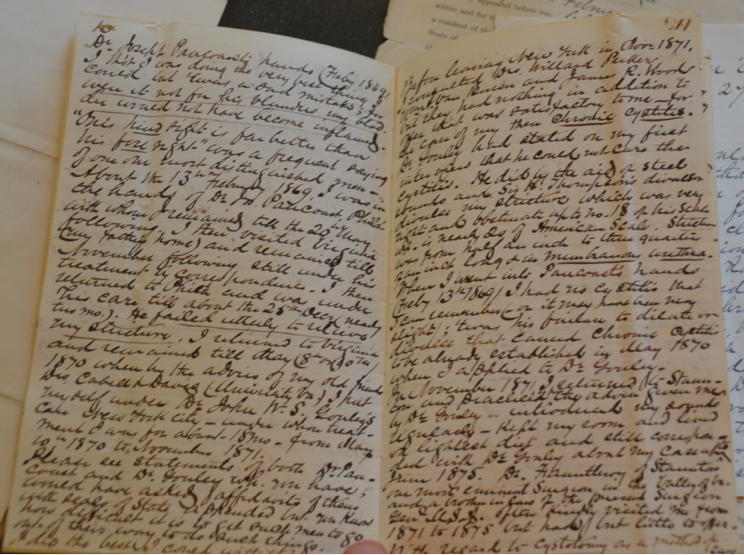 10
Dr. Joseph Pancoast's hands (Feby 1869)
I thot I was doing the very best thing I
could but 'twas a sad mistake; for
were it not for his blunders my blad-
der would not have become inflamed.
"His hind sight is far better than
his fore sight" was a frequent saying
of one our most distinguished men —
About the 13th February 1869, I was in
the hands of Dr Jo Pancoast Phila
with whom I remained till the 25th May
following. I then visited Virginia
(my father's home) and remained till
November following still under his
treatment by correspondence. I then
returned to Phila and was under
his care till about the 25th Decr, nearly
two mo.). He failed utterly to relieve
my stricture. I returned to Virginia
and remained till May (8 or 10th)
1870 when by the advice of my old friend
Drs. Cabell & Davis (University Va) I put
myself under Dr. John W. S. Gouley's
care New York city — under whose treat-
ment I was for about 18 mo. — from May
10th 1870 to November 1871.
Please see statements of both Dr. Pan-
coast and Dr Gouley wh. you have;
would have asked affidavits of them
with seals of State appended but you know
how difficult it is to get such men to go
out of their way to do such things.
I did the best I could with
11
Before leaving New York in Novr 1871,
I consulted Drs. Willard Parker,
Van Buren and James R. Wood
but they had nothing in addition to
offer that was satisfactory to me — for
the cure of my then chronic cystitis.
Dr Gouley had stated on my first
interview that he could not cure the
cystitis. He did by the aid of steel
sounds and Sir H. Thompson's divulsor
divulse my stricture which was very
tight and obstinate up to no. 18 of his scale
Dr. is nearly 28 of American Scale. Stricture
was from half an inch to three quarters
an inch long & in membranous urethra.
When I went into Pancoast's hands
(Feby 13th 1869) I had no cystitis that
I can remember (or it may have been very
slight); 'twas his failure to dilate or
divulse that caused chronic cystitis
to be already established in May 1870
when I applied to Dr. Gouley.
In November 1871, I returned to Staun-
ton and practiced the advice given me
by Dr Gouley — introduced my sounds
regularly — kept my room and lived
on lightest diet and still correspon-
ded with Dr Gouley about my case up to
June 1875. Dr. Fauntleroy of Staunton
our most eminent Surgeon in the Valley of Va.
and a brother in law to the present Surgeon
Gen. U.S.A. often kindly visited me from
1871 to 1875 but had but little to offer.
With regard to cystotomy as a method of